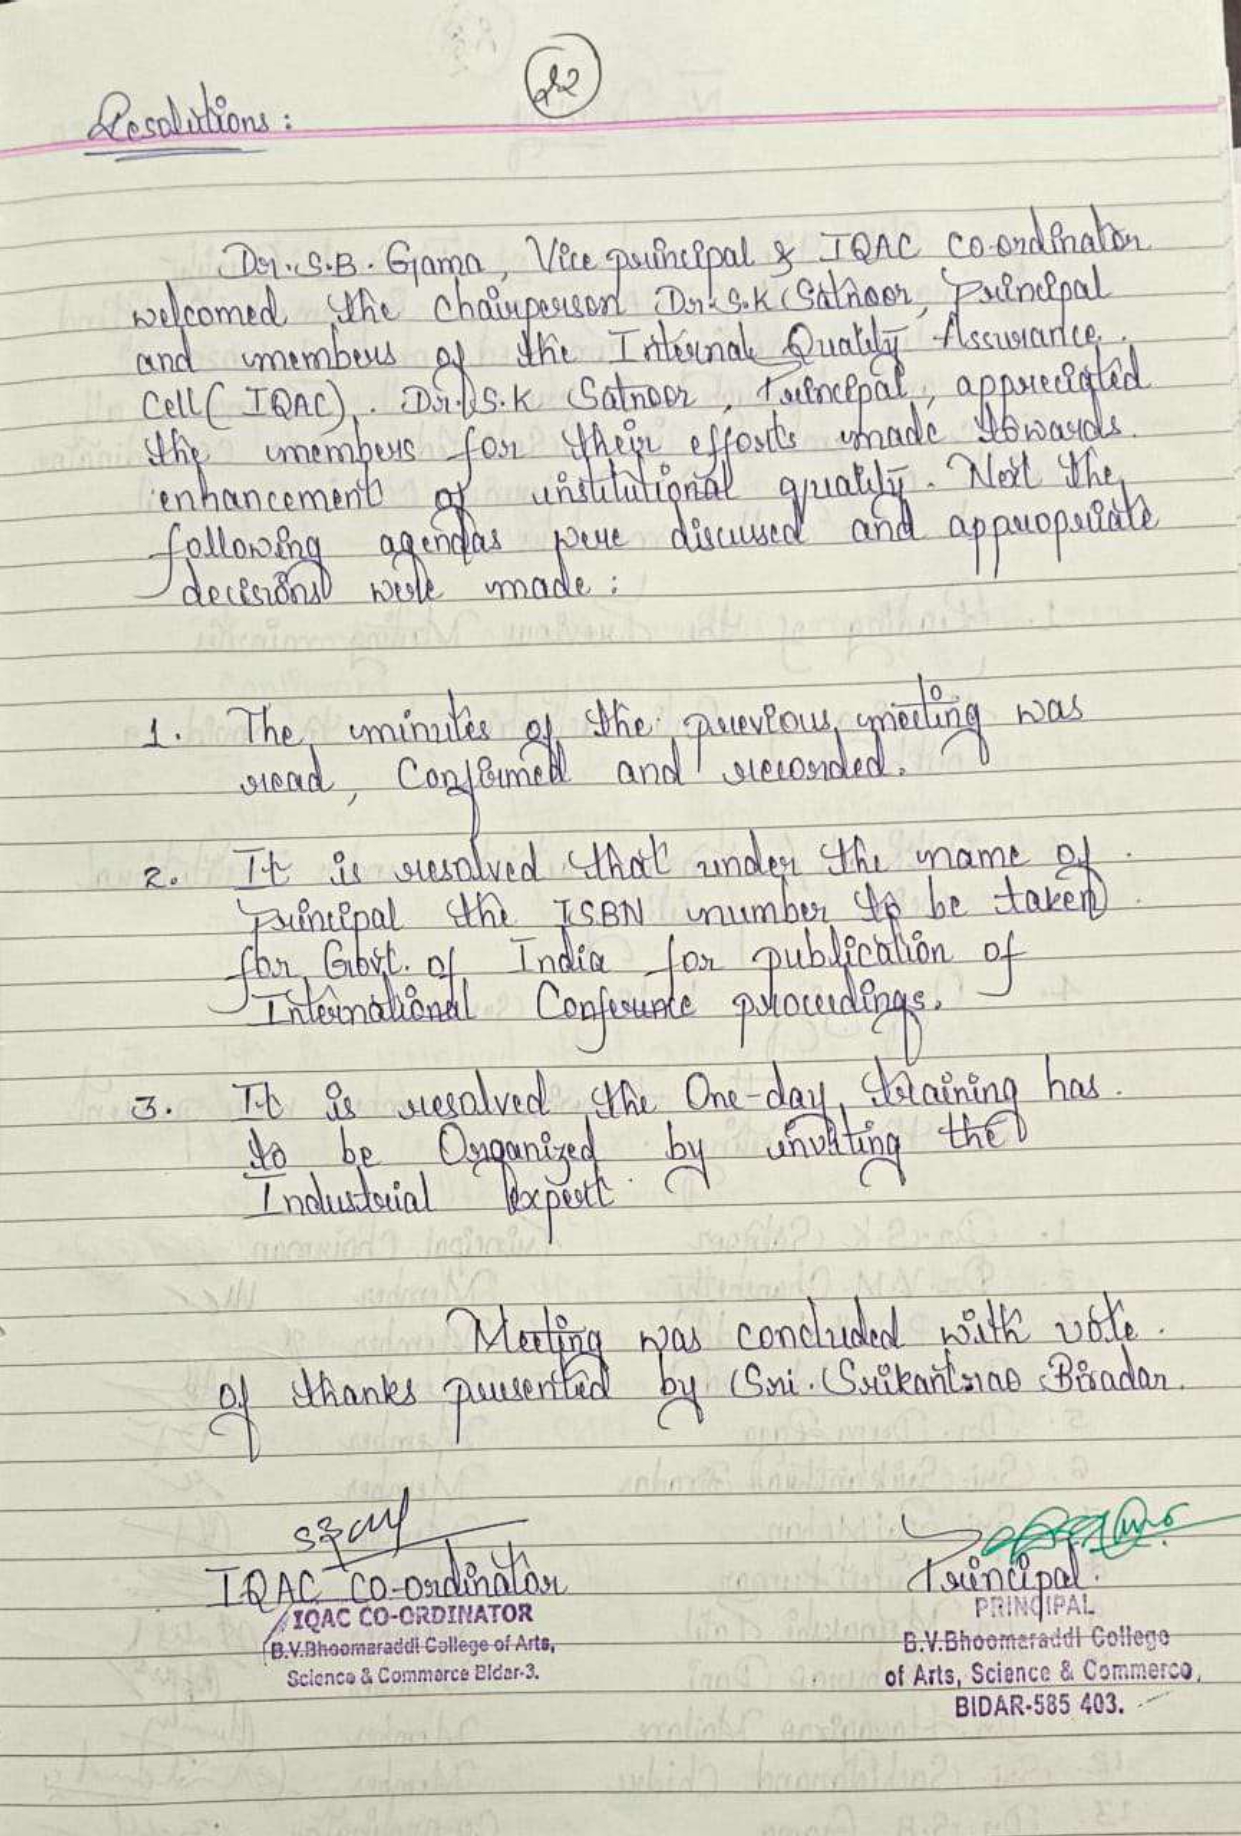 22
Resolutions:
Dr. S.B. Gama, Vice principal & IQAC Co-ordinator
welcomed the Chairperson Dr. S.K Satnoor, Principal
and members of the Internal Quality Assurance
Cell (IQAC). Dr. S.K Satnoor, Principal, appreciated
the members for their efforts made towards
enhancement of institutional quality. Next the
following agendas were discussed and appropriate
decisions were made:
1. The minutes of the previous meeting was
read, Confirmed and recorded.
2. It is resolved that under the name of
Principal the ISBN number to be taken
for Govt. of India for publication of
International Conference proceedings.
3. It is resolved the One-day training has
to be Organized by inviting the
Industrial Expert.
Meeting was concluded with vote
of thanks presented by Sri. Srikantrao Biradar.
IQAC Co-ordinator
IQAC CO-ORDINATOR
B.V.Bhoomaraddi College of Arts,
Science & Commerce Bidar-3.
Principal.
PRINCIPAL
B.V.Bhoomaraddi College
of Arts, Science & Commerce,
BIDAR-585 403.